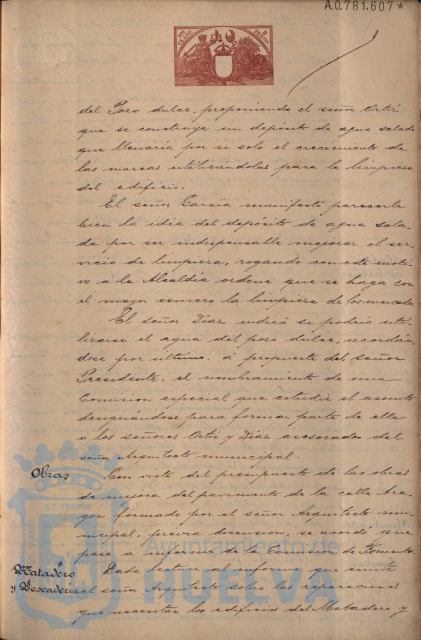 A.0.781.607*
del Pozo dulce, proponiendo el señor Ortiz
que se construya un depósito de agua salada
que llenaria por si solo el crecimiento de
las mareas utilizándolas para la limpieza
del edificio.
El señor García manifestó parecerle
bien la idea del depósito de agua sala-
da por ser indispensable mejorar el ser-
vicio de limpieza, rogando con este moti-
vo á la Alcaldia ordene que se haga con
el mayor esmero la limpieza de los mercados
El señor Diaz indicó si podria uti-
lizarse el agua del pozo dulce, acordán-
dose por ultimo, á propuesta del señor
Presidente, el nombramiento de una
Comision especial que estudie el asunto
designándose para formar parte de ella
á los señores Ortiz y Diaz asesorados del
señor Arquitecto municipal.
Obras Con vista del presupuesto de las obras
de mejora del pavimento de la calle Ara-
gon formado por el señor Arquitecto mu-
nicipal, previa discusion, se acordó que
pase á informe de la Comision de Fomento.
Matadero Dada lectura al informe que emite
y Pescaderia el señor Arquitecto sobre las reparaciones
que necesitan los edificios del Matadero y
Ayuntamiento de
HUELVA